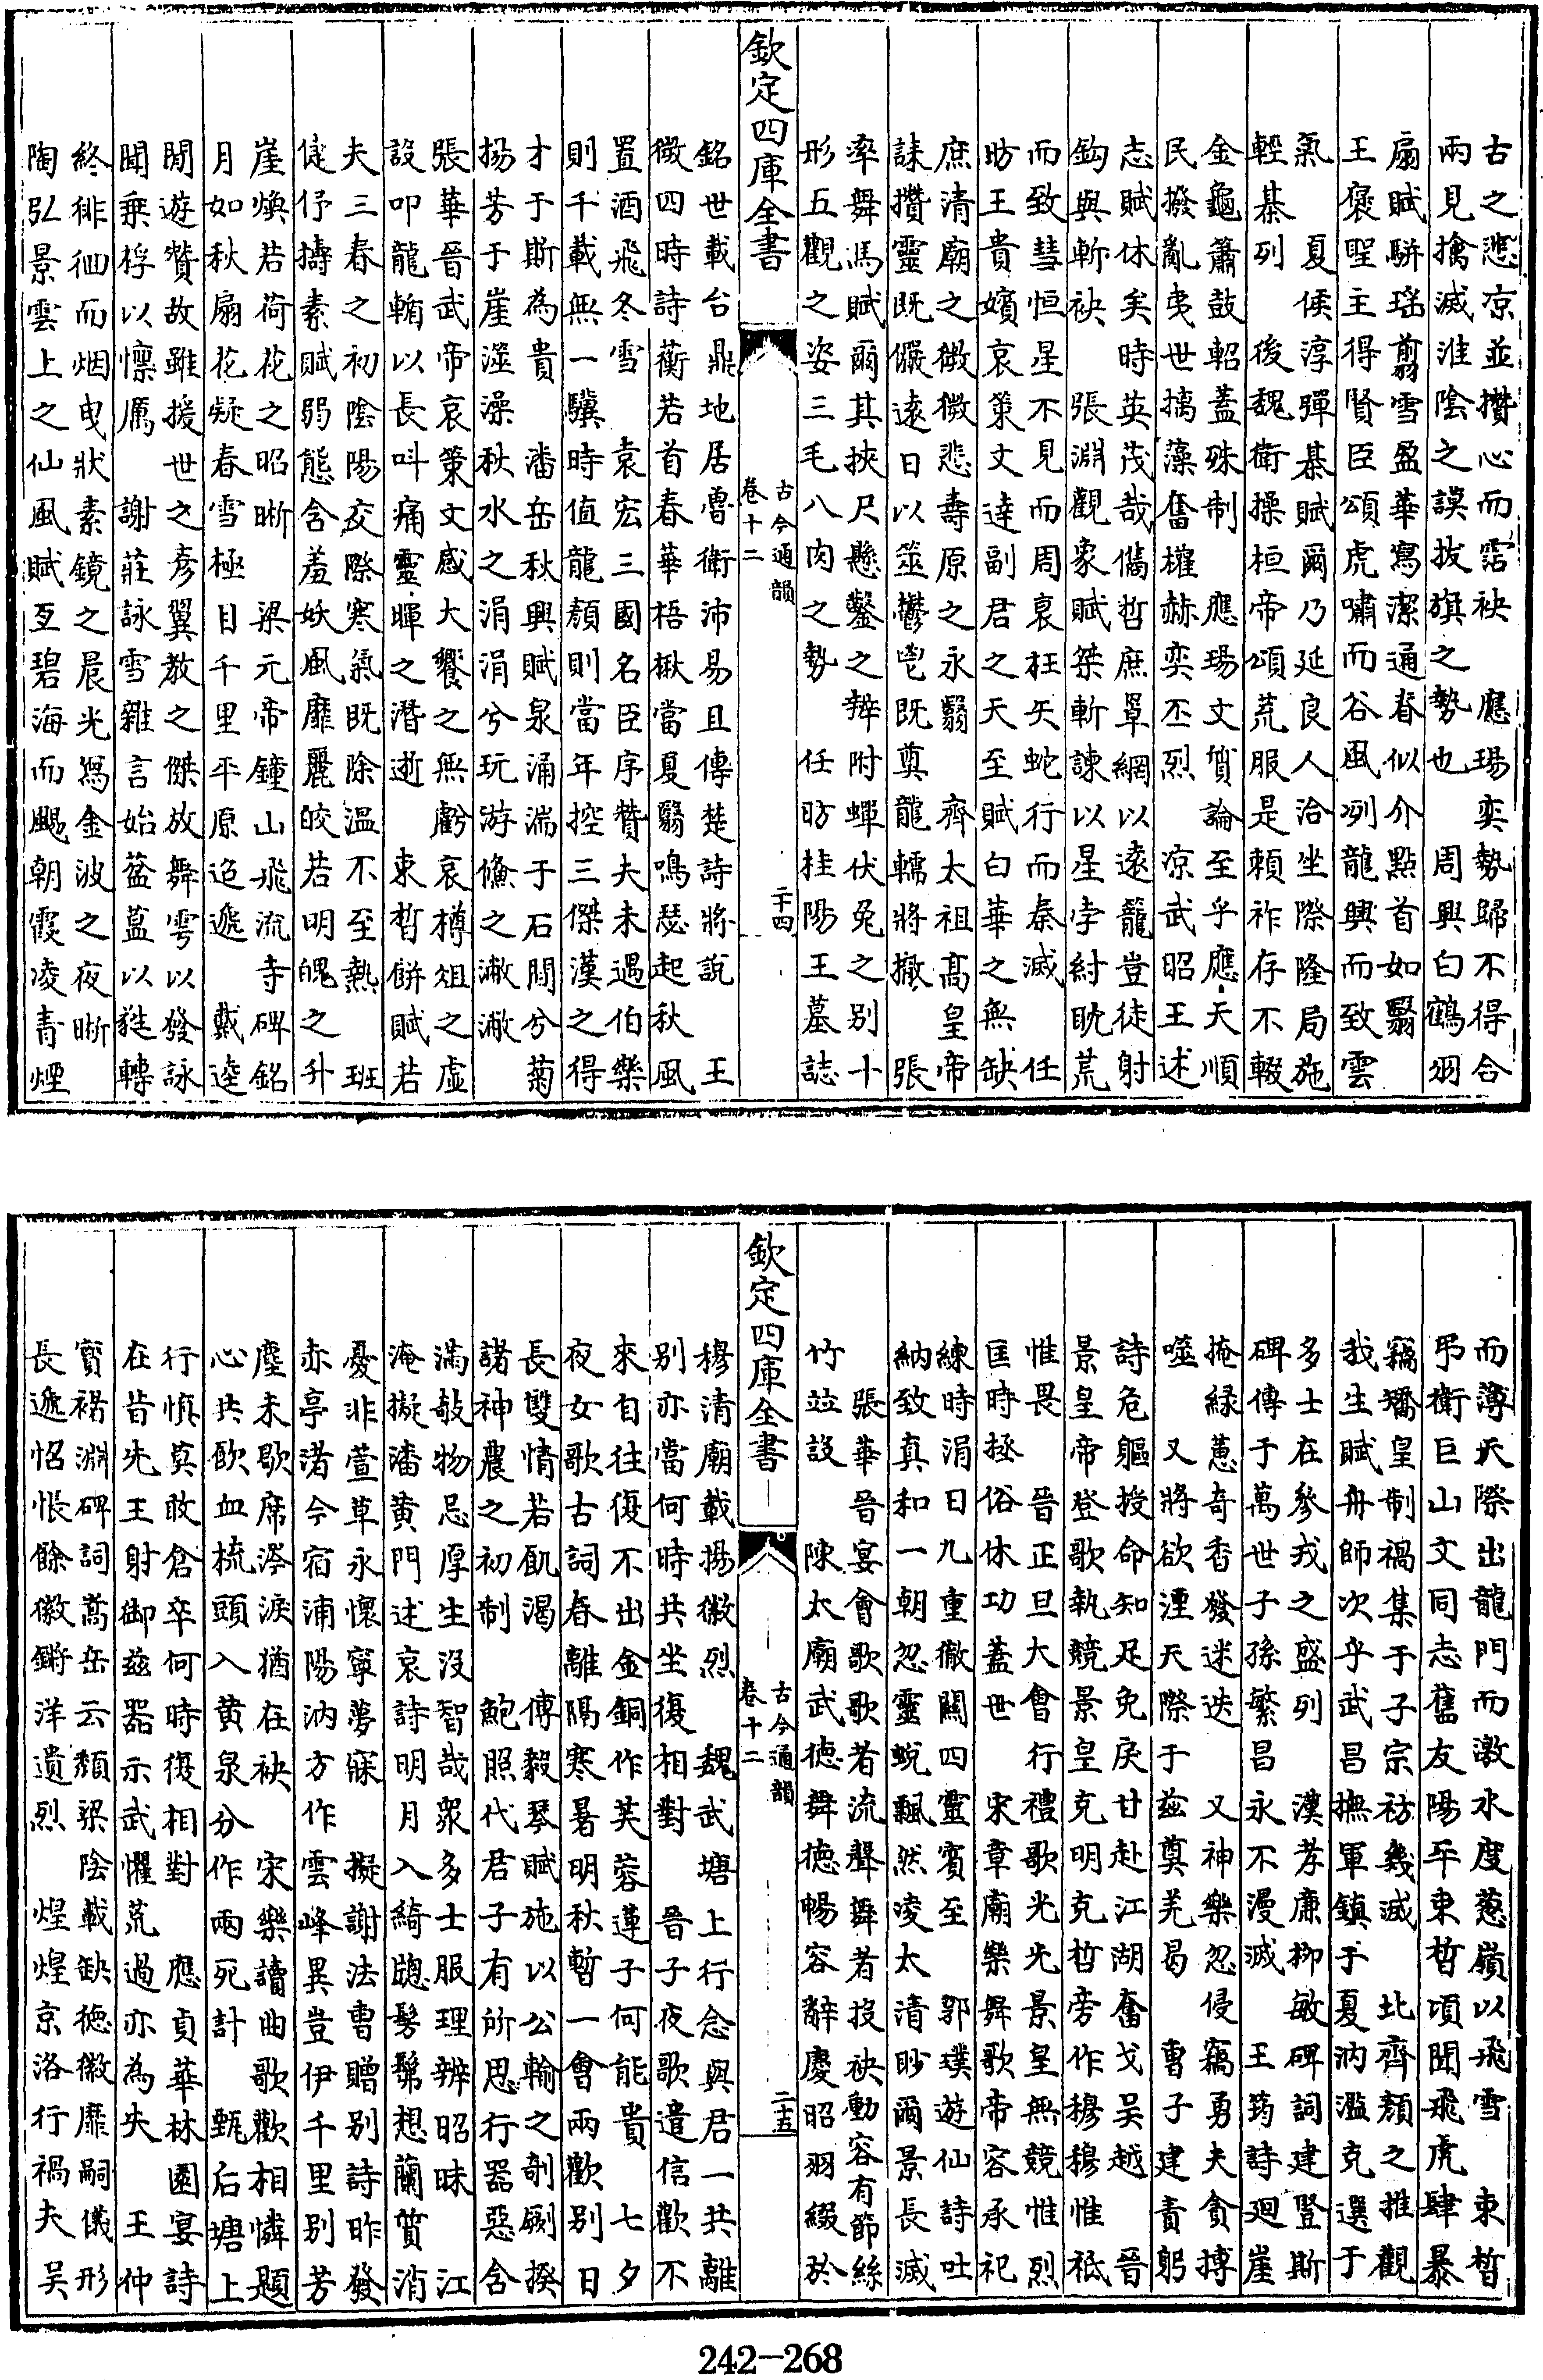 古之悲凉並攢心而霑袂　應瑒奕勢歸不得合
兩見擒滅淮陰之謨拔旗之勢也　周興白鶴羽
扇賦駢瑤翦雪盈華寫潔通春似介點首如翳
王褒聖主得賢臣頌虎嘯而谷風冽龍興而致雲
氣　夏侯淳彈碁賦爾乃延良人洽坐際隆局施
輕碁列　後魏衛操桓帝頌荒服是賴祚存不輟
金龜簫鼓軺蓋殊制　應瑒文質論至乎應天順
民撥亂夷世摛藻奮權赫奕丕烈　凉武昭王述
志賦休矣時英茂哉儁哲庶罩網以遠籠豈徒射
鈎與斬袂　張淵觀象賦桀斬諫以星孛紂耽荒
而致彗恒星不見而周衰枉矢蛇行而秦滅　任
昉王貴嬪哀策文達副君之天至賦白華之無缺
庶清廟之微微悲壽原之永翳　齊太祖高皇帝
誄攢靈既儼遠日以筮鬱鬯既奠龍轜將撤　張
率舞馬賦爾其挾尺懸鑿之辯附蟬伏兔之别十
形五觀之姿三毛八肉之勢　任昉桂陽王墓誌
欽定四庫全書
古今通韻
卷十二
二十四
銘世載台鼎地居魯衛沛易且傳楚詩將說　王
微四時詩蘅若首春華梧楸當夏翳鳴瑟起秋風
置酒飛冬雪　袁宏三國名臣序贊夫未遇伯樂
則千載無一驥時值龍顏則當年控三傑漢之得
才于斯為貴　潘岳秋興賦泉涌湍于石間兮菊
揚芳于崖澨澡秋水之涓涓兮玩游儵之潎潎
張華晉武帝哀策文感大饗之無虧哀樽俎之虛
設叩龍輴以長叫痛靈暉之潛逝　束晳餅賦若
夫三春之初陰陽交際寒氣既除温不至熱　班
倢伃擣素賦弱態含羞妖風靡麗皎若明魄之升
崖煥若荷花之昭晣　梁元帝鐘山飛流寺碑銘
月如秋扇花疑春雪極目千里平原迢遞　戴逵
閒遊贊故雖援世之彥翼教之傑放舞雩以發詠
聞乗桴以懍厲　謝莊詠雪雜言始葐蒀以蓰轉
終徘徊而烟曳狀素鏡之晨光寫金波之夜晣
陶弘景雲上之仙風賦亙碧海而颺朝霞凌青煙
而薄天際出龍門而激水度葱嶺以飛雪　束晳
弔衛巨山文同志舊友陽平束晳頃聞飛虎肆暴
竊矯皇制禍集于子宗祊幾滅　北齊顏之推觀
我生賦舟師次乎武昌撫軍鎮于夏汭濫克選于
多士在參戎之盛列　漢孝廉柳敏碑詞建豎斯
碑傳于萬世子孫繁昌永不漫滅　王筠詩迴崖
掩緑蕙奇香發迷迭　又神樂忽侵竊勇夫貪搏
噬　又將欲湮天際于兹奠羌曷　曹子建責躬
詩危軀授命知足免戾甘赴江湖奮戈吳越　晉
景皇帝登歌執競景皇克明克哲旁作穆穆惟祗
惟畏　晉正旦大會行禮歌光光景皇無競惟烈
匡時拯俗休功蓋世　宋章廟樂舞歌帝容承祀
練時涓日九重徹關四靈賓至　郭璞遊仙詩吐
納致真和一朝忽靈蛻飄然凌太清眇爾景長滅
張華晉宴會歌歌者流聲舞者投袂動容有節絲
竹竝設　陳太廟武德舞德暢容辭慶昭羽綴於
欽定四庫全書
古今通韻
卷十二
二十五
穆清廟載揚徽烈　魏武塘上行念與君一共離
别亦當何時共坐復相對　晉子夜歌遣信歡不
來自往復不出金銅作芙蓉蓮子何能貴　七夕
夜女歌古詞春離隔寒暑明秋暫一會兩歡别日
長雙情若飢渴　傅毅琴賦施以公輸之剞劂揆
諸神農之初制　鮑照代君子有所思行器惡含
滿攲物忌厚生沒智哉衆多士服理辨昭昧　江
淹擬潘黄門述哀詩明月入綺牕髣髴想蘭質消
憂非萱草永懷寧夢寐　擬謝法曹贈别詩昨發
赤亭渚今宿浦陽汭方作雲峰異豈伊千里别芳
塵未歇席涔淚猶在袂　宋樂讀曲歌歡相憐題
心共飲血梳頭入黄泉分作兩死計　甄后塘上
行慎莫敢倉卒何時復相對　應貞華林園宴詩
在昔先王射御兹器示武懼荒過亦為失　王仲
寶褚淵碑詞嵩岳云頹梁陰載缺德徽靡嗣儀形
長遞怊悵餘徽鏘洋遺烈　煌煌京洛行禍夫吳
242—268